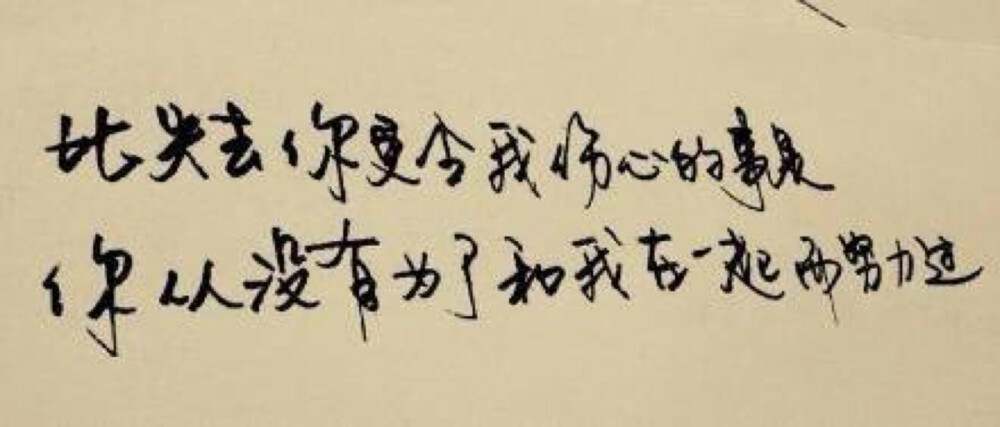 比失去你更令我伤心的事是
你从没有为了和我在一起而努力过